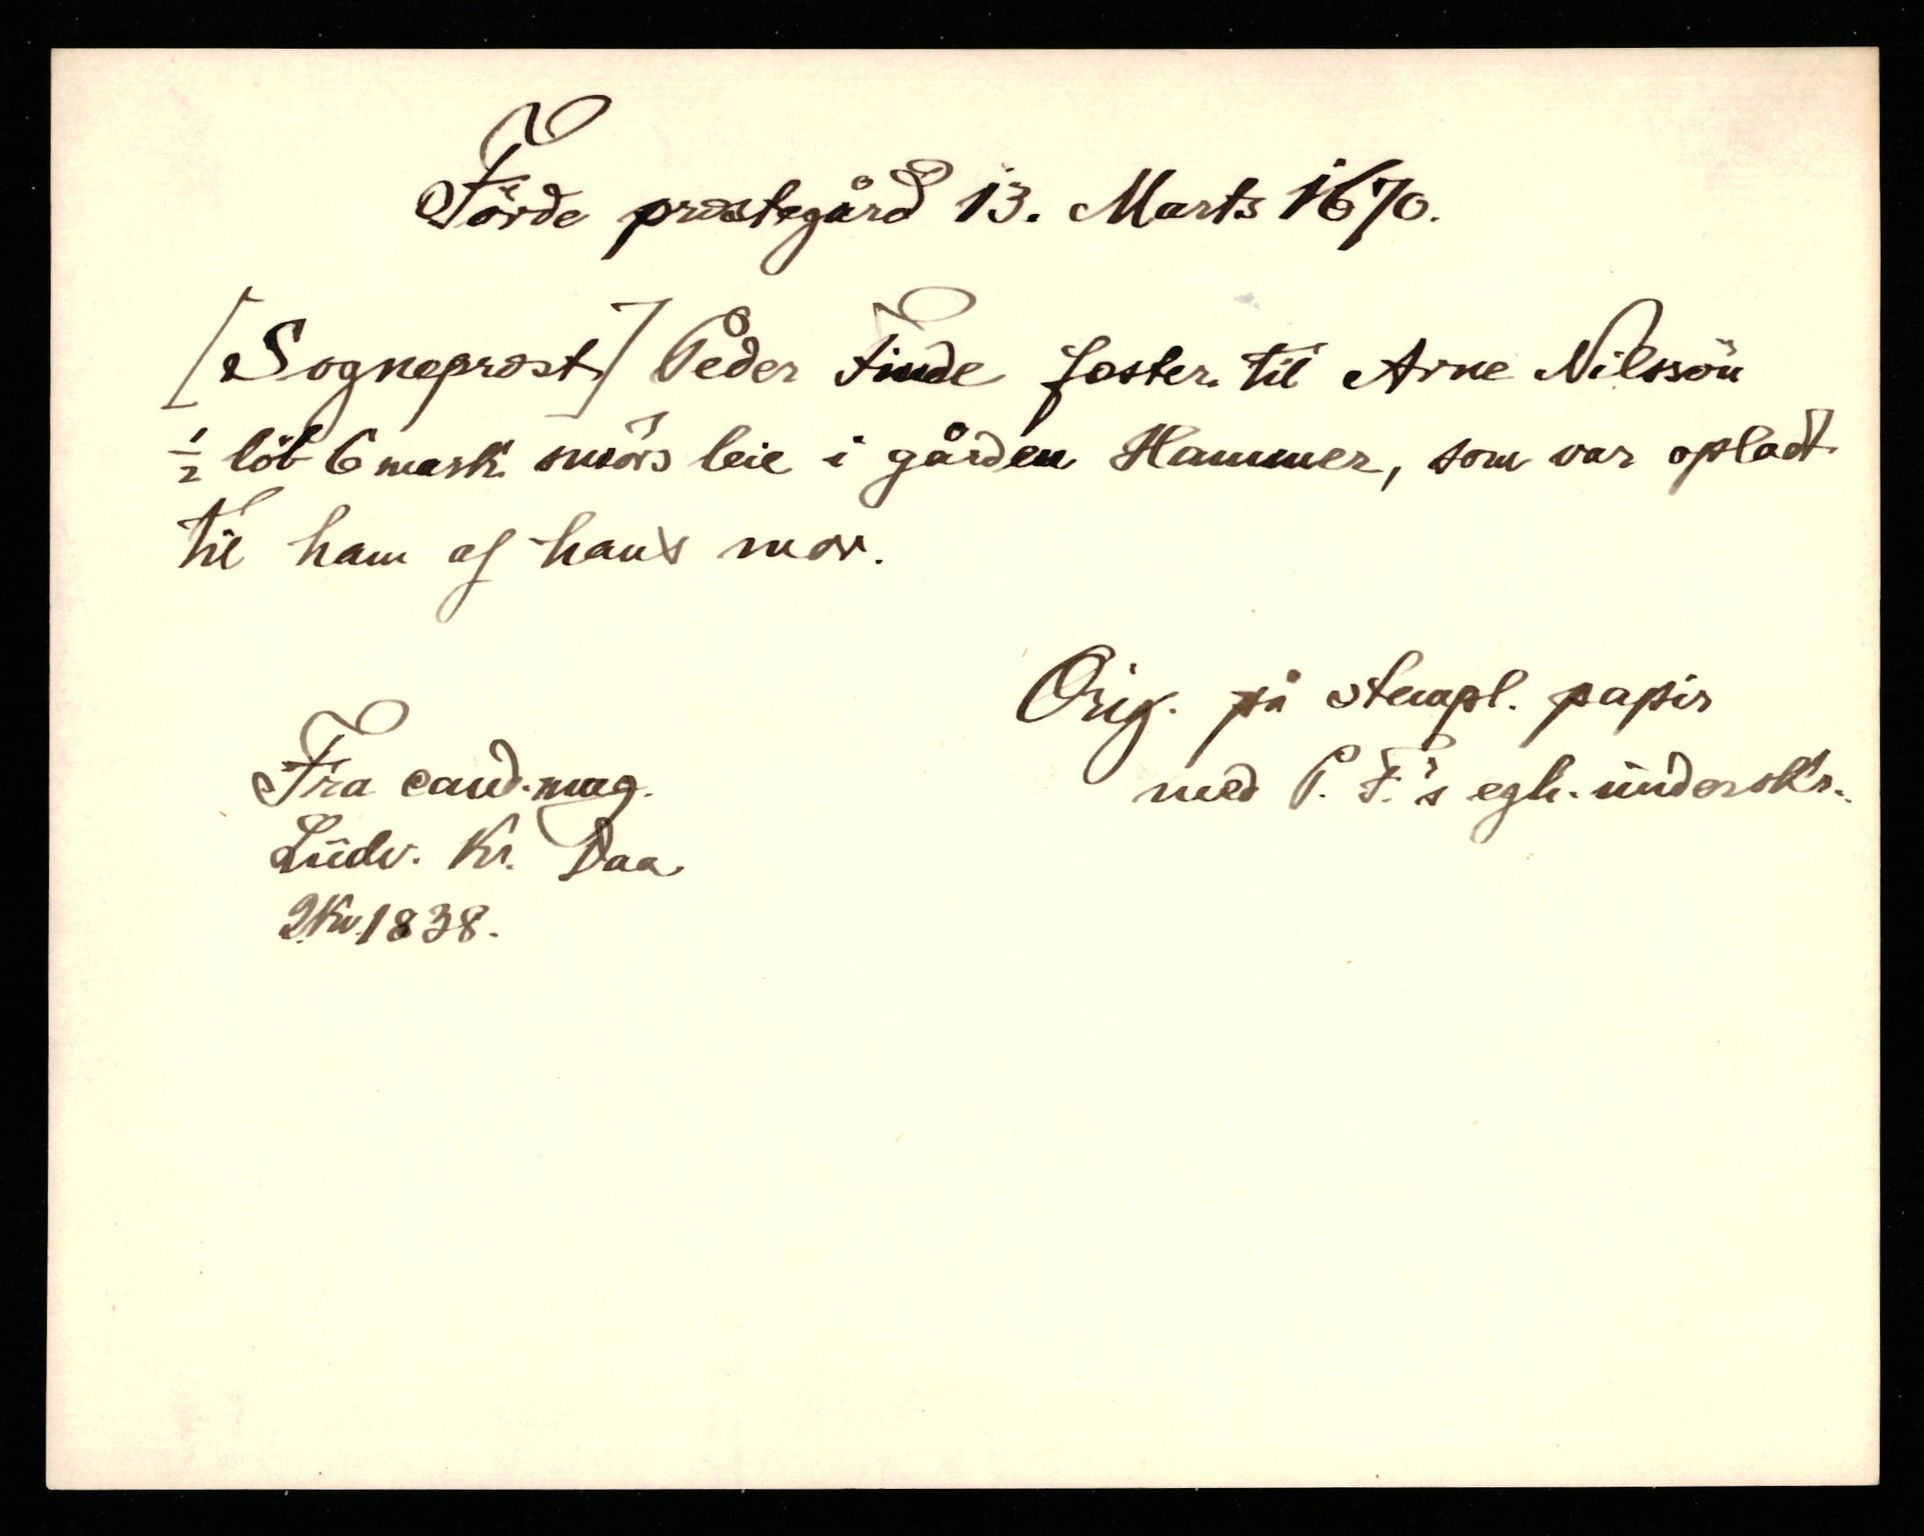 Förde præstegård 13. Marts 1670.
[Sognepræst] Peder Finde fæster til Arne Nilssön
1/2 löb 6 mark smörs leie i gården Hammer, som var opladt
til ham af hans mor.
Orig. på stempl. papir
med P. F.'s egh. underskr.
Fra cand. mag.
Ludv. Kr. Daa
2 Kv. 1838.